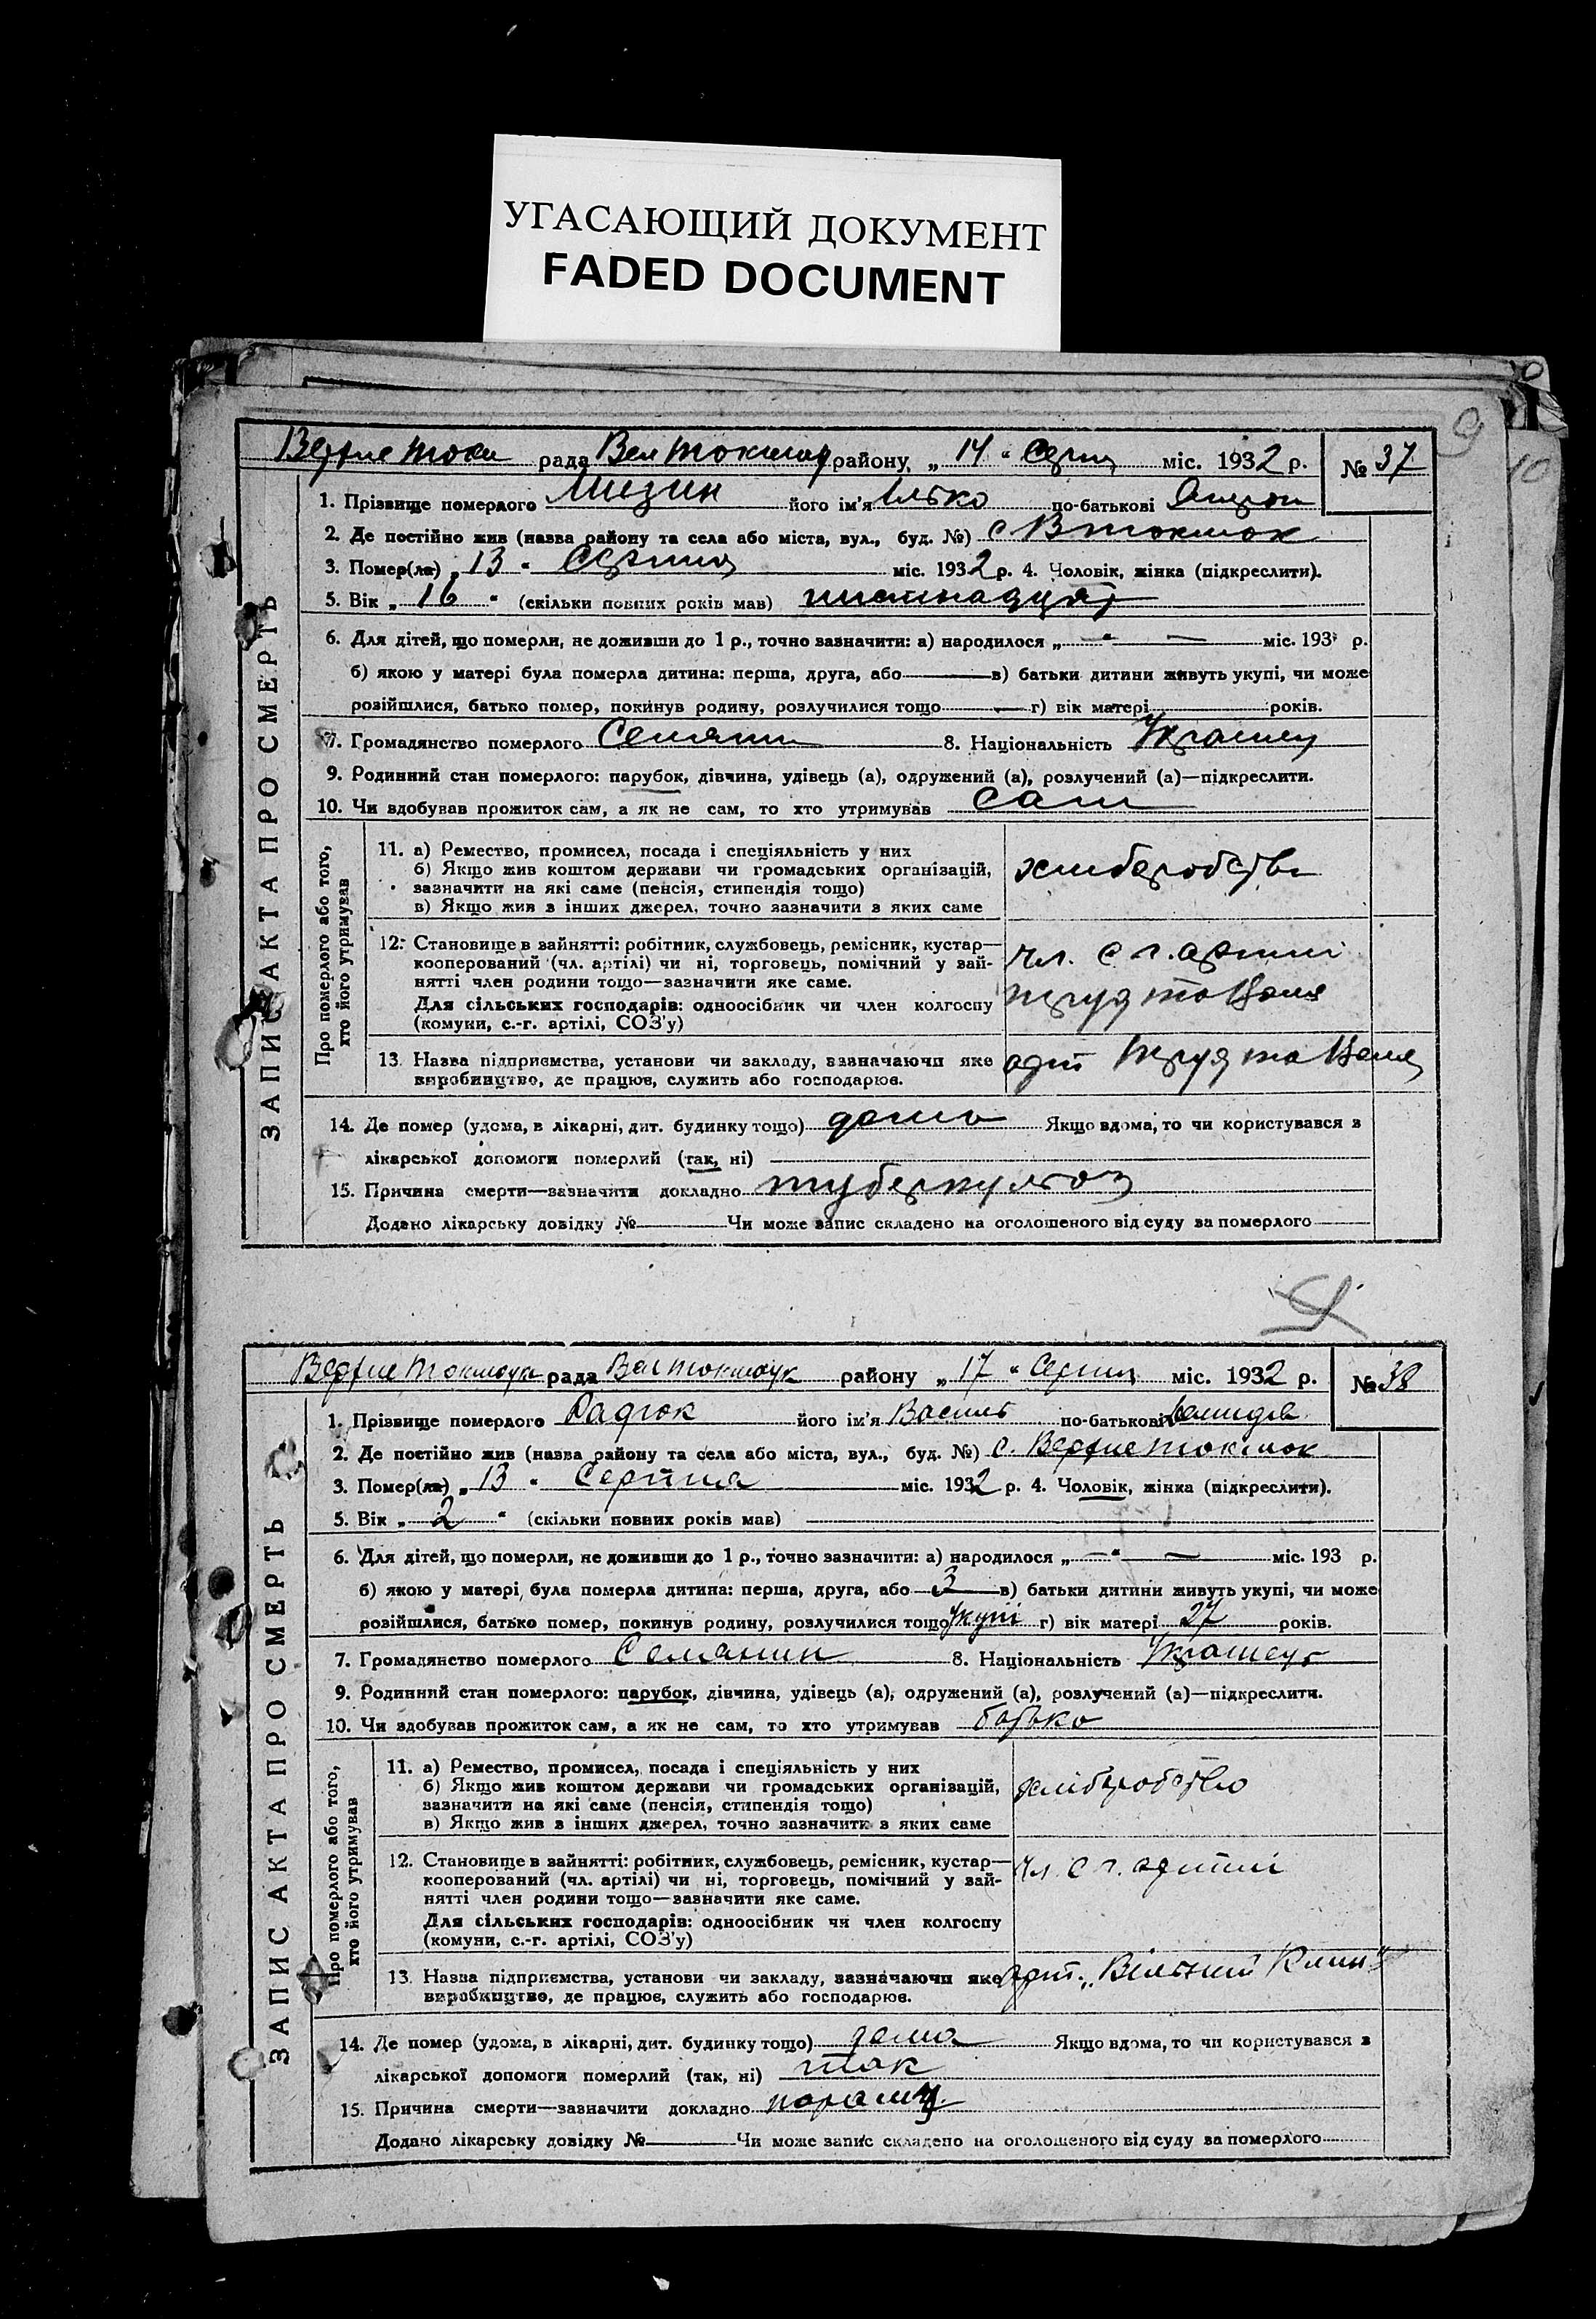 УГАСАЮЩИЙ ДОКУМЕНТ
FADED DOCUMENT
9
10
ЗАПИС АКТА ПРО СМЕРТЬ
рада Вел Токмац району „ 14 “ Серпня міс. 1932 р. № 37
1. Прізвище померлого Мизин його ім'я Ілько по-батькові
2. Де постійно жив (назва району та села або міста, вул., буд. №) с В Токмак
3. Помер(ла) „ 13 “ Серпня міс. 1932 р. 4. Чоловік, жінка (підкреслити).
5. Вік „ 16 “ (скільки повних років мав) шістнадцять
6. Для дітей, що померли, не доживши до 1 р., точно зазначити: а) народилося „ — “ — міс. 193 р.
б) якою у матері була померла дитина: перша, друга, або — в) батьки дитини живуть укупі, чи може
розійшлися, батько помер, покинув родину, розлучилися тощо — г) вік матері років.
7. Громадянство померлого Селянин 8. Національність Українець
9. Родинний стан померлого: парубок, дівчина, удівець (а), одружений (а), розлучений (а)—підкреслити.
10. Чи здобував прожиток сам, а як не сам, то хто утримував сам
Про померлого або того, хто його утримував
11. а) Ремество, промисел, посада і спеціяльність у них
б) Якщо жив коштом держави чи громадських організацій,
зазначити на які саме (пенсія, стипендія тощо)
в) Якщо жив з інших джерел, точно зазначити з яких саме
хлиборобство
12. Становище в зайнятті: робітник, службовець, ремісник, кустар—
кооперований (чл. артілі) чи ні, торговець, помічний у зай-
нятті член родини тощо—зазначити яке саме.
Для сільських господарів: одноосібник чи член колгоспу
(комуни, с.-г. артілі, СОЗ'у)
чл. с г. артилі
труд та Воля
13. Назва підприємства, установи чи закладу, зазначаючи яке
виробництво, де працює, служить або господарює.
арт Труд та Воля
14. Де помер (удома, в лікарні, дит. будинку тощо) дома Якщо вдома, то чи користувався з
лікарської допомоги померлий (так, ні)
15. Причина смерти—зазначити докладно туберкульоз
Додано лікарську довідку № — Чи може запис складено на оголошеного від суду за померлого —
ЗАПИС АКТА ПРО СМЕРТЬ
рада Вел Токмацьк району „ 17 “ Серпня міс. 1932 р. № 38
1. Прізвище померлого Радюк його ім'я Василь по-батькові
2. Де постійно жив (назва району та села або міста, вул., буд. №) с. Верхне Токмак
3. Помер(ла) „ 13 “ Серпня міс. 1932 р. 4. Чоловік, жінка (підкреслити).
5. Вік „ 2 “ (скільки повних років мав)
6. Для дітей, що померли, не доживши до 1 р., точно зазначити: а) народилося „ — “ — міс. 193 р.
б) якою у матері була померла дитина: перша, друга, або 3 в) батьки дитини живуть укупі, чи може
розійшлися, батько помер, покинув родину, розлучилися тощо Укупі г) вік матері 27 років.
7. Громадянство померлого Селянин 8. Національність Українець
9. Родинний стан померлого: парубок, дівчина, удівець (а), одружений (а), розлучений (а)—підкреслити.
10. Чи здобував прожиток сам, а як не сам, то хто утримував батько
Про померлого або того, хто його утримував
11. а) Ремество, промисел, посада і спеціяльність у них
б) Якщо жив коштом держави чи громадських організацій,
зазначити на які саме (пенсія, стипендія тощо)
в) Якщо жив з інших джерел, точно зазначити з яких саме
хліборобство
12. Становище в зайнятті: робітник, службовець, ремісник, кустар—
кооперований (чл. артілі) чи ні, торговець, помічний у зай-
нятті член родини тощо—зазначити яке саме.
Для сільських господарів: одноосібник чи член колгоспу
(комуни, с.-г. артілі, СОЗ'у)
чл. с г. артилі
13. Назва підприємства, установи чи закладу, зазначаючи яке
виробництво, де працює, служить або господарює.
арт. „Вільний Клин“
14. Де помер (удома, в лікарні, дит. будинку тощо) дома Якщо вдома, то чи користувався з
лікарської допомоги померлий (так, ні) так
15. Причина смерти—зазначити докладно
Додано лікарську довідку № — Чи може запис складено на оголошеного від суду за померлого